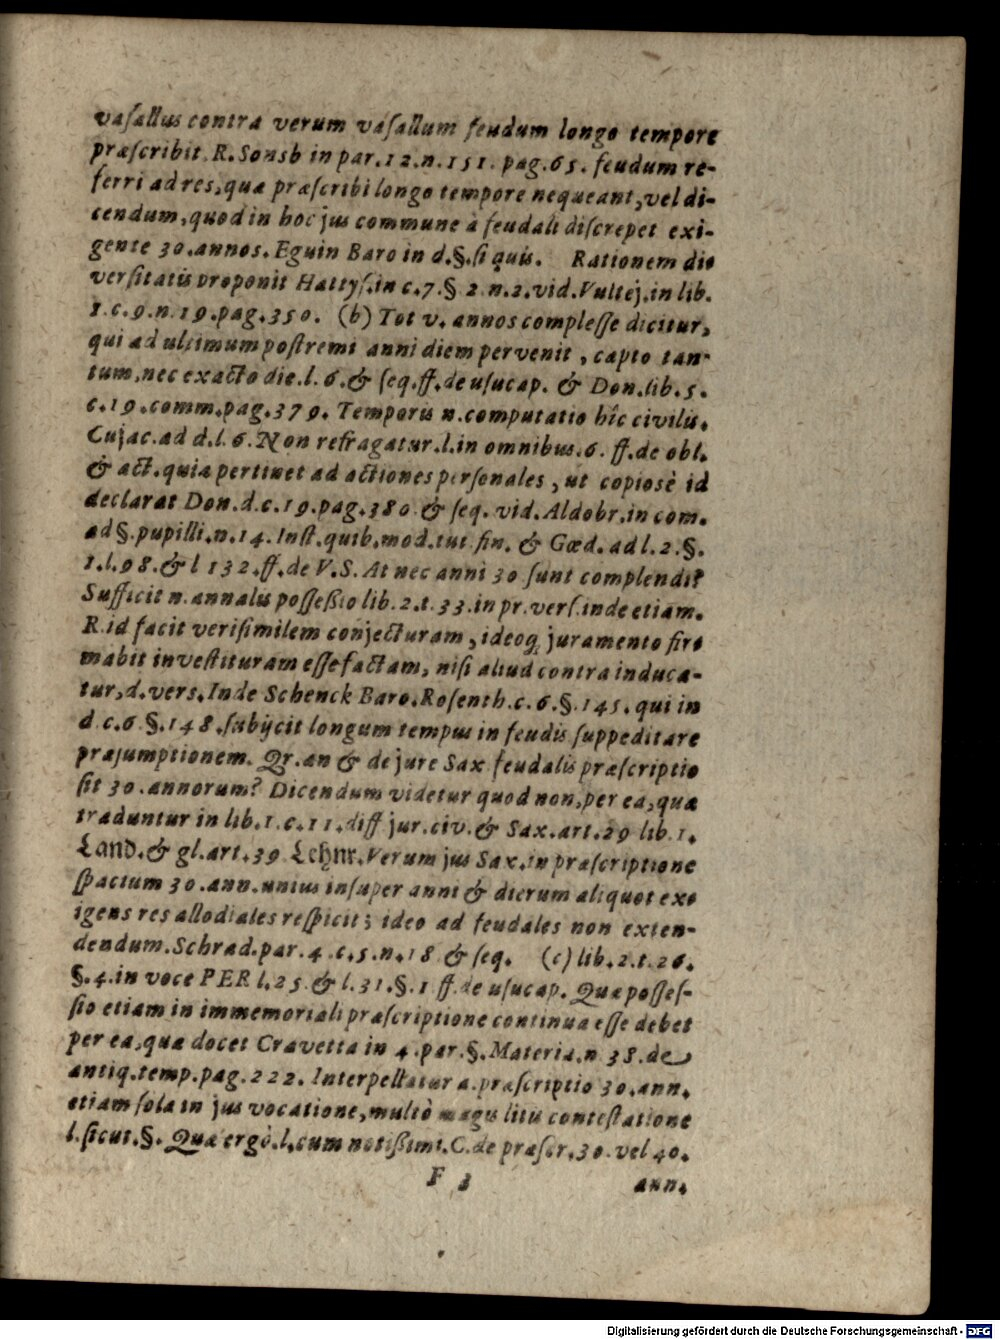 vaſallus contra verum vaſallum feudum longo tempore
præſcribit. R. Sonsb in par. 12. n. 151. pag. 65. feudum re-
ferri ad res, quæ præſcribi longo tempore nequeant, vel di-
cendum, quod in hoc jus commune à feudali diſcrepet exi-
gente 30. annos. Eguin Baro in d. §. ſi quis. Rationem di-
verſitatis proponit Hattyſ. in c. 7. § 2. n. 2. vid. Vultej. in lib.
1. c. 9. n. 19. pag. 350. (b) Tot v. annos compleſſe dicitur,
qui ad ultimum poſtremi anni diem pervenit, capto tan-
tum, nec exacto die. l. 6. & ſeq. ff. de uſucap. & Don. lib. 5.
c. 19. comm. pag. 379. Temporis n. computatio hîc civilis.
Cujac. ad d. l. 6. Non refragatur. l. in omnibus. 6. ff. de obl.
& act. quia pertinet ad actiones perſonales, ut copiosè id
declarat Don. d. c. 19. pag. 380 & ſeq. vid. Aldobr. in com.
ad §. pupilli. n. 14. Inſt. quib. mod. tut fin. & Gœd. ad l. 2. §.
1. l. 98. & l 132. ff. de V. S. At nec anni 30 ſunt complendi?
Sufficit n. annalis poſſeßio lib. 2. t. 33. in pr. verſ. inde etiam.
R. id facit veriſimilem conjecturam, ideoq; juramento fir-
mabit inveſtituram eſſe factam, niſi aliud contra induca-
tur, d. vers. Inde Schenck Baro. Roſenth. c. 6. §. 145. qui in
d. c. 6 §. 148. ſubijcit longum tempus in feudis ſuppeditare
præſumptionem. Qr. an & de jure Sax feudalis præſcriptio
ſit 30. annorum? Dicendum videtur quod non, per ea, quæ
traduntur in lib. 1. c. 11. diff jur. civ. & Sax. art. 29 lib. 1.
Land. & gl. art. 39 Lehnr. Verum jus Sax. in præſcriptione
ſpacium 30. ann. unius inſuper anni & dierum aliquot exi-
igens res allodiales reſpicit; ideo ad feudales non exten-
dendum. Schrad. par. 4. c. 5. n. 18 & ſeq. (c) lib. 2. t. 26.
§. 4. in voce PER l. 25 & l. 31. §. 1 ff. de uſucap. Quæ poſſeſ-
ſio etiam in immemoriali præſcriptione continua eſſe debet
per ea, quæ docet Cravetta in 4. par. §. Materia. n 38. de
antiq. temp. pag. 222. Interpellatur a. præſcriptio 30. ann.
etiam ſola in jus vocatione, multò magis litis conteſtatione
l. ſicut. §. Quæ ergò. l. cum notißimi. C. de præſcr. 30. vel 40.
F 3 ann.
Digitalisierung gefördert durch die Deutsche Forschungsgemeinschaft - DFG